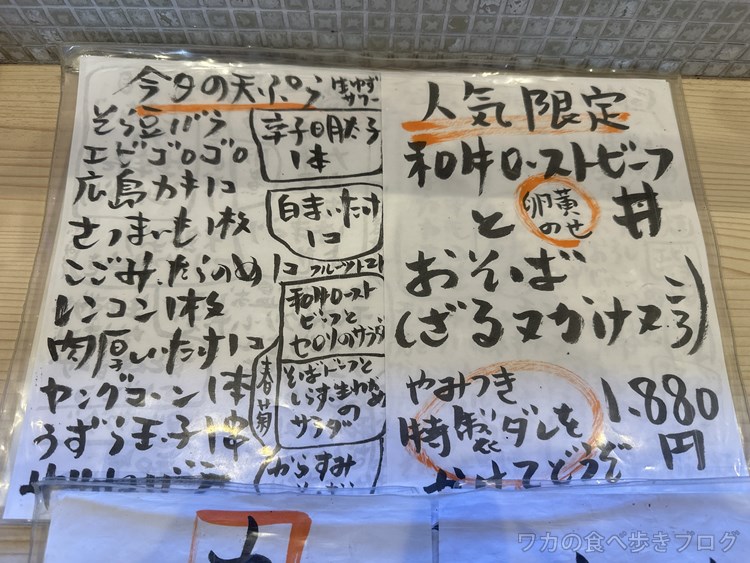 今日の天ぷら
生ゆず
サワー
そら豆バラ
エビゴロゴロ
広島カキ1コ
さつまいも1枚
こごみ、たらのめ
レンコン1枚
肉厚しいたけ1コ
ヤングコーン1本
うずら玉子1串
辛子明太子
1本
白まいたけ
1コ
1コ フルーツトマト
和牛ロースト
ビーフと
セロリのサラダ
春菊
そばドーフと
しらす、生わかめ
の
サラダ
からすみ
人気限定
和牛ローストビーフ
と 卵黄のせ 丼
おそば
(ざるヌかけヌころ)
やみつき
特製ダレを
かけてどうぞ
1.880
円
ワカの食べ歩きブログ